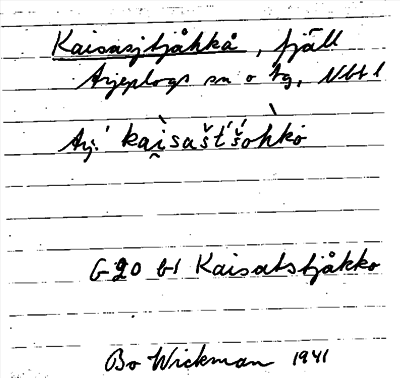 Kaisasjtjåhkå, fjäll
Arjeplogs sn o tg, Nbt l
Arj. kai̯sašt́š́ohkò
G20 bl Kaisatstjåkko
Bo Wickman 1941